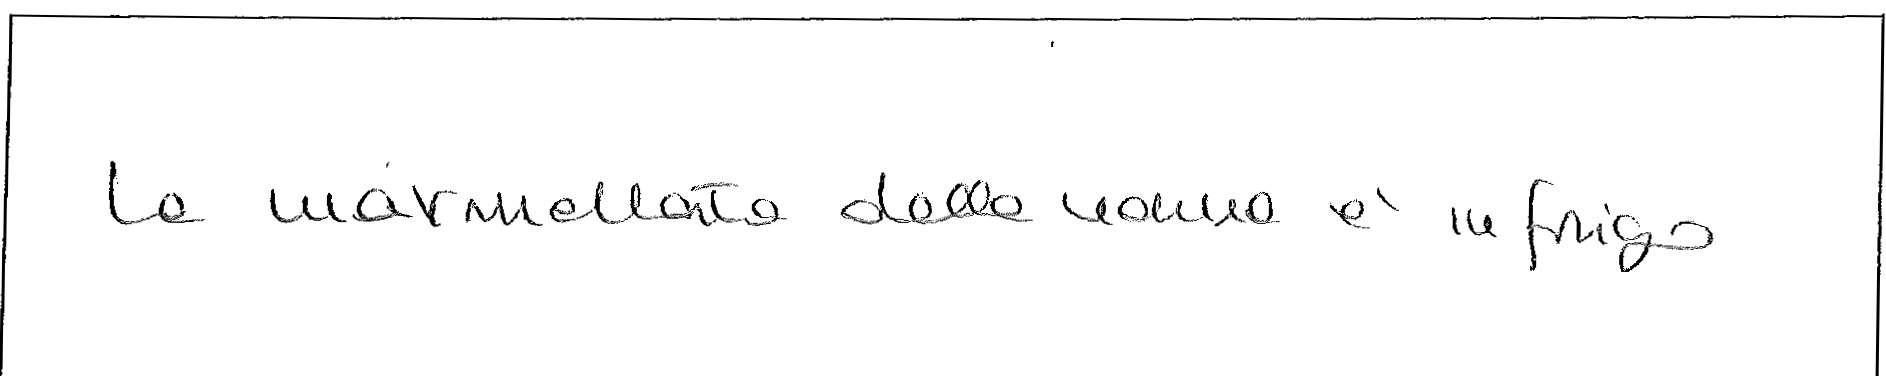 La marmellata della nonna è in frigo